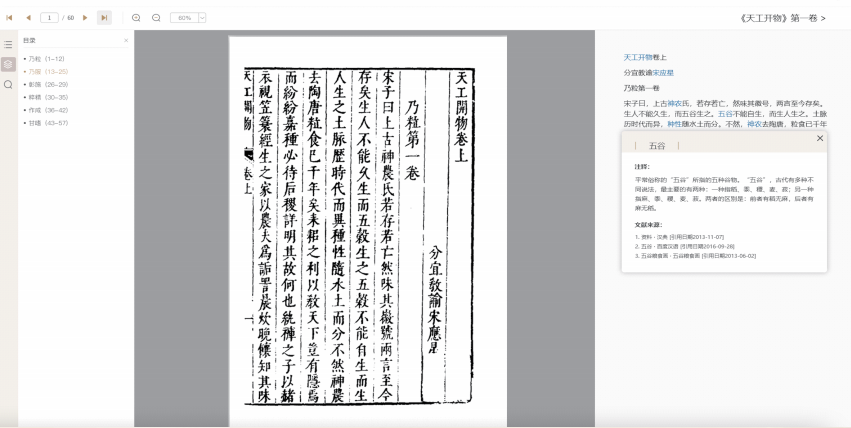 1 / 60
60%
《天工开物》第一卷 >
目录 ×
• 乃粒（1-12）
• 乃服（13-25）
• 彰施（26-29）
• 粹精（30-35）
• 作咸（36-42）
• 甘嗜（43-57）
天工開物卷上
分宜教諭宋應星
乃粒第一卷
宋子曰上古神農氏若存若亡然味其徽號兩言至今
存矣生人不能久生而五穀生之五穀不能自生而生
人生之土脉歷時代而異種性隨水土而分不然神農
去陶唐粒食已千年矣耒耜之利以教天下豈有隱焉
而紛紛嘉種必待后稷詳明其故何也紈褲之子以赭
衣視笠簑經生之家以農夫爲詬詈晨炊晚饟知其味
天工開物 卷上 一
天工开物卷上
分宜教谕宋应星
乃粒第一卷
宋子曰，上古神农氏，若存若亡，然味其徽号，两言至今存矣。
生人不能久生，而五谷生之。五谷不能自生，而生人生之。土脉
历时代而异，种性随水土而分。不然，神农去陶唐，粒食已千年
五谷 ×
注释：
平常俗称的“五谷”所指的五种谷物。“五谷”，古代有多种不
同说法，最主要的有两种：一种指稻、黍、稷、麦、菽；另一种
指麻、黍、稷、麦、菽。两者的区别是：前者有稻无麻，后者有
麻无稻。
文献来源：
1. 资料 · 汉典 [引用日期2013-11-07]
2. 五谷 · 百度汉语 [引用日期2016-09-28]
3. 五谷粮食画 · 五谷粮食画 [引用日期2013-06-02]